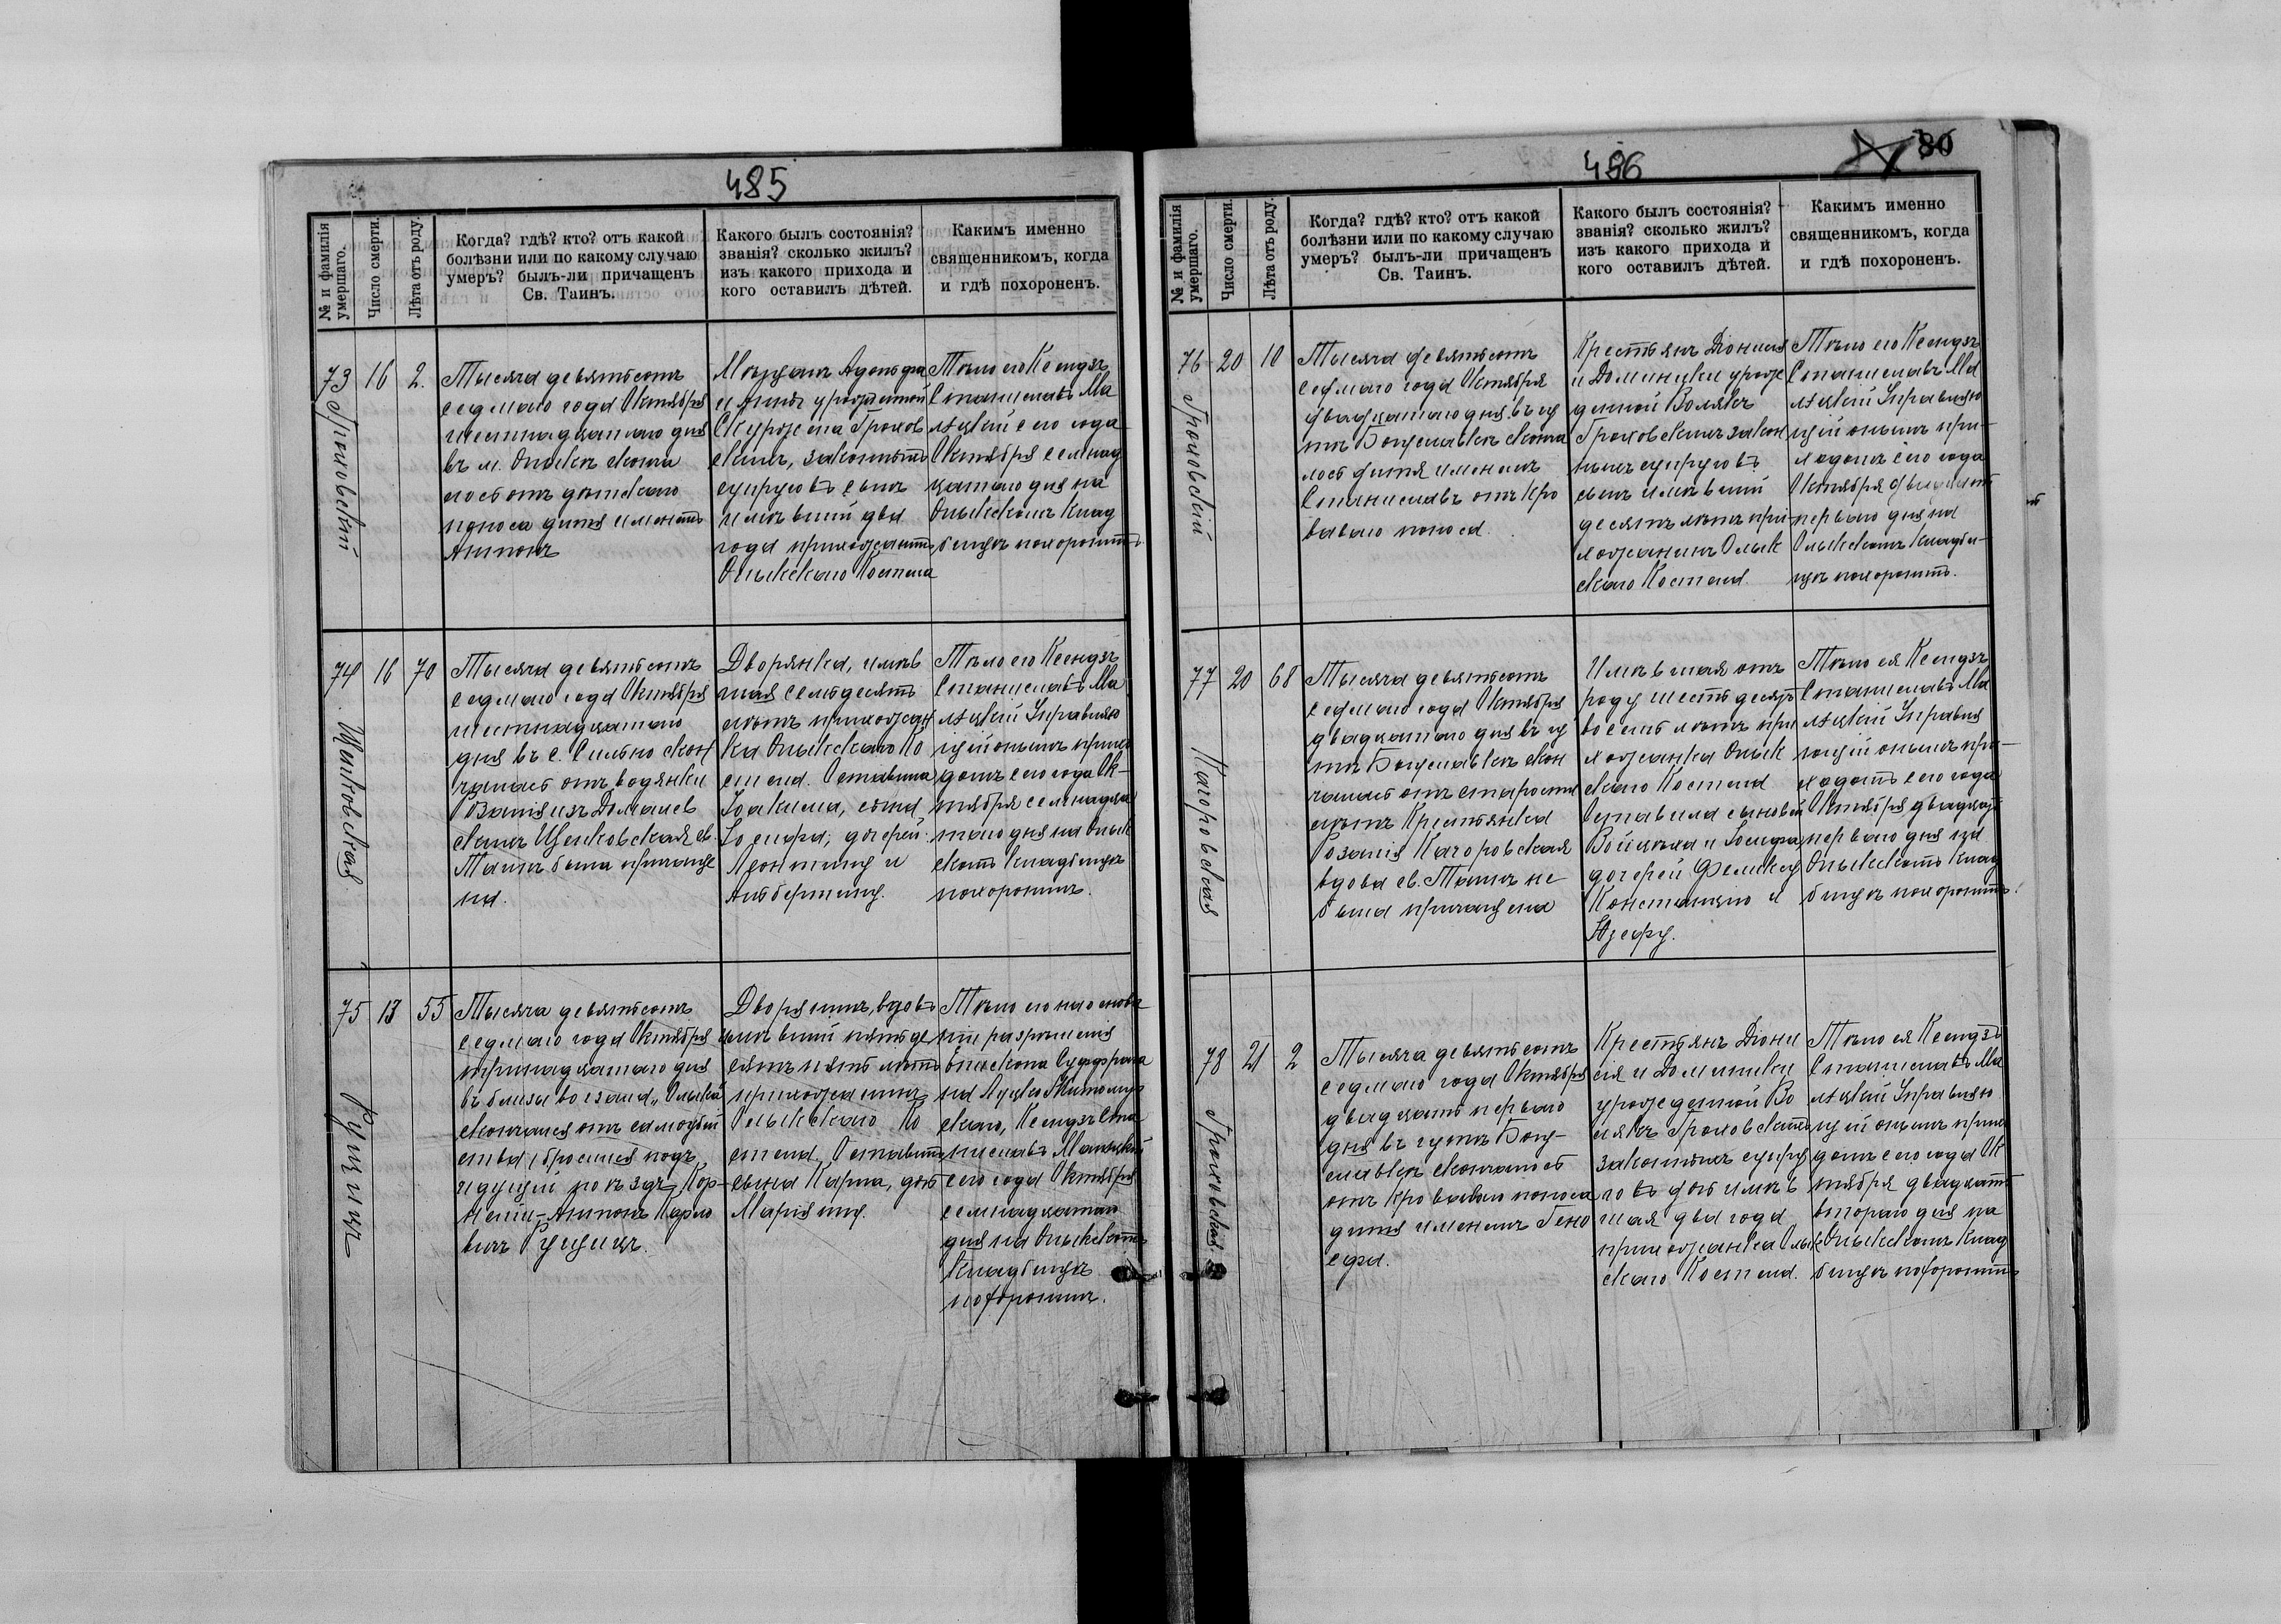 485
№ и фамилія
умершаго.
Число смерти.
Лѣта отъ роду.
Когда? гдѣ? кто? отъ какой
болѣзни или по какому случаю
умеръ? былъ-ли причащенъ
Св. Таинъ.
Какого былъ состоянія?
званія? сколько жилъ?
изъ какого прихода и
кого оставилъ дѣтей.
Какимъ именно
священникомъ, когда
и гдѣ похороненъ.
73
Гроховскій
16
2.
Тысяча девятьсотъ
седмаго года Октября
шестнадцатаго дня
въ м. Олыкѣ сконча
лось отъ дѣтскаго
поноса дитя именемъ
Антонъ
Мѣщанъ Адольфа
и Анны урожденной
Скурожена Грохов
скихъ, законныхъ
супруговъ сынъ
имѣвшій два
года прихожанинъ
Олыкскаго Костела
Тѣло его Ксендзъ
Станиславъ Ма
лѣцкій сего года
Октября семнад
цатаго дня на
Олыкскомъ клад
бищѣ похоронилъ.
74
Щенковская
16
70
Тысяча девятьсотъ
седмаго года Октября
шестнадцатаго
дня въ с. Сильно скон
чалась отъ водянки
Розалія изъ Домалев
скихъ Щенковская св.
Таинъ была причаще
на.
Дворянка, имѣв
шая семьдесятъ
лѣтъ прихожан
ка Олыкскаго Ко
стела. Оставила
Іоакима, сына,
Іосифа; дочерей:
Леонтину и
Альбертину.
Тѣло его Ксендзъ
Станиславъ Ма
лѣцкій Управляю
щій онымъ прихо
домъ сего года Ок-
тября семнадца
таго дня на Олык
скомъ кладбищѣ
похоронилъ.
75
Рущицъ
13
55
Тысяча девятьсотъ
седмаго года Октября
тринадцатаго дня
въ близи вокзала „Олыка“
скончался отъ самоубій
ства (бросился подъ
идущій поѣздъ) Кор-
нелій-Антонъ Карло
вичъ Рущицъ.
Дворянинъ, вдовъ
имѣвшій пятьде
сятъ пять лѣтъ
прихожанинъ
Олыкскаго Ко
стела. Оставилъ
сына Карла, дочь
Маріянну.
Тѣло его на основа
ніи разрѣшенія
Епископа Суффрага
на Луцко-Житомир
скаго, Ксендзъ Ста
ниславъ Малѣцкій
сего года Октября
семнадцатаго
дня на Олыкскомъ
кладбищѣ
похоронилъ.
486
80
№ и фамилія
умершаго.
Число смерти.
Лѣта отъ роду.
Когда? гдѣ? кто? отъ какой
болѣзни или по какому случаю
умеръ? былъ-ли причащенъ
Св. Таинъ.
Какого былъ состоянія?
званія? сколько жилъ?
изъ какого прихода и
кого оставилъ дѣтей.
Какимъ именно
священникомъ, когда
и гдѣ похороненъ.
76
Гроховскій
20
10
Тысяча девятьсотъ
седмаго года Октября
двадцатаго дня въ гу
тѣ Богуславкѣ сконча
лось дитя именемъ
Станиславъ отъ кро
ваваго поноса.
Крестьянъ Діонисія
и Доминики урож
денной Волякъ
Гроховскихъ закон
ныхъ супруговъ
сынъ имѣвшій
десять лѣтъ при
хожанинъ Олык
скаго Костела.
Тѣло его Ксендзъ
Станиславъ Ма
лѣцкій Управляю
щій онымъ при-
ходомъ сего года
Октября двадцать
перваго дня на
Олыкскомъ кладби-
щѣ похоронилъ.
77
Качоровская
20
68
Тысяча девятьсотъ
седмаго года Октября
двадцатаго дня въ гу
тѣ Богуславкѣ скон
чалась отъ старости
лѣтъ Крестьянка
Розалія Качоровская
вдова св. Таинъ не
была причащена
Имѣвшая отъ
роду шестьдесятъ
восемь лѣтъ при
хожанка Олык
скаго Костела
Оставила сыновей
Войцѣха и Іосифа,
дочерей Фелицію
Констанцію и
Юзефу.
Тѣло ея Ксендзъ
Станиславъ Ма
лѣцкій Управля
ющій онымъ при-
ходомъ сего года
Октября двадцать
перваго дня на
Олыкскомъ клад
бищѣ похоронилъ.
78
Гроховская
21
2
Тысяча девятьсотъ
седмаго года Октября
двадцать перваго
дня въ гутѣ Богу-
славкѣ скончалось
отъ кроваваго поноса
дитя именемъ Гено
вефа.
Крестьянъ Діони
сія и Доминики
урожденной Во
лякъ Гроховскихъ
законныхъ супру
говъ дочь имѣв
шая два года
прихожанка Олык
скаго Костела.
Тѣло ея Ксендзъ
Станиславъ Ма
лѣцкій Управляю
щій онымъ прихо
домъ сего года Ок
тября двадцать
втораго дня на
Олыкскомъ клад
бищѣ похоронилъ